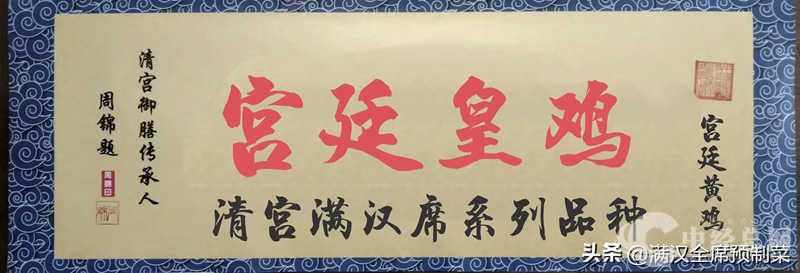 清宫御膳传承人
周锦题
宫廷皇鸡
清宫满汉席系列品种
宫廷黄鸡
头条 @满汉全席预制菜